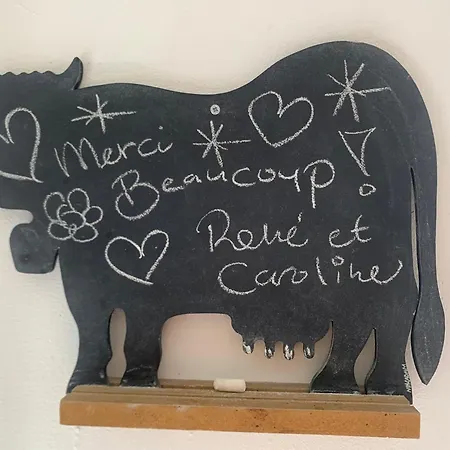 Merci
Beaucoup!
René et
Caroline